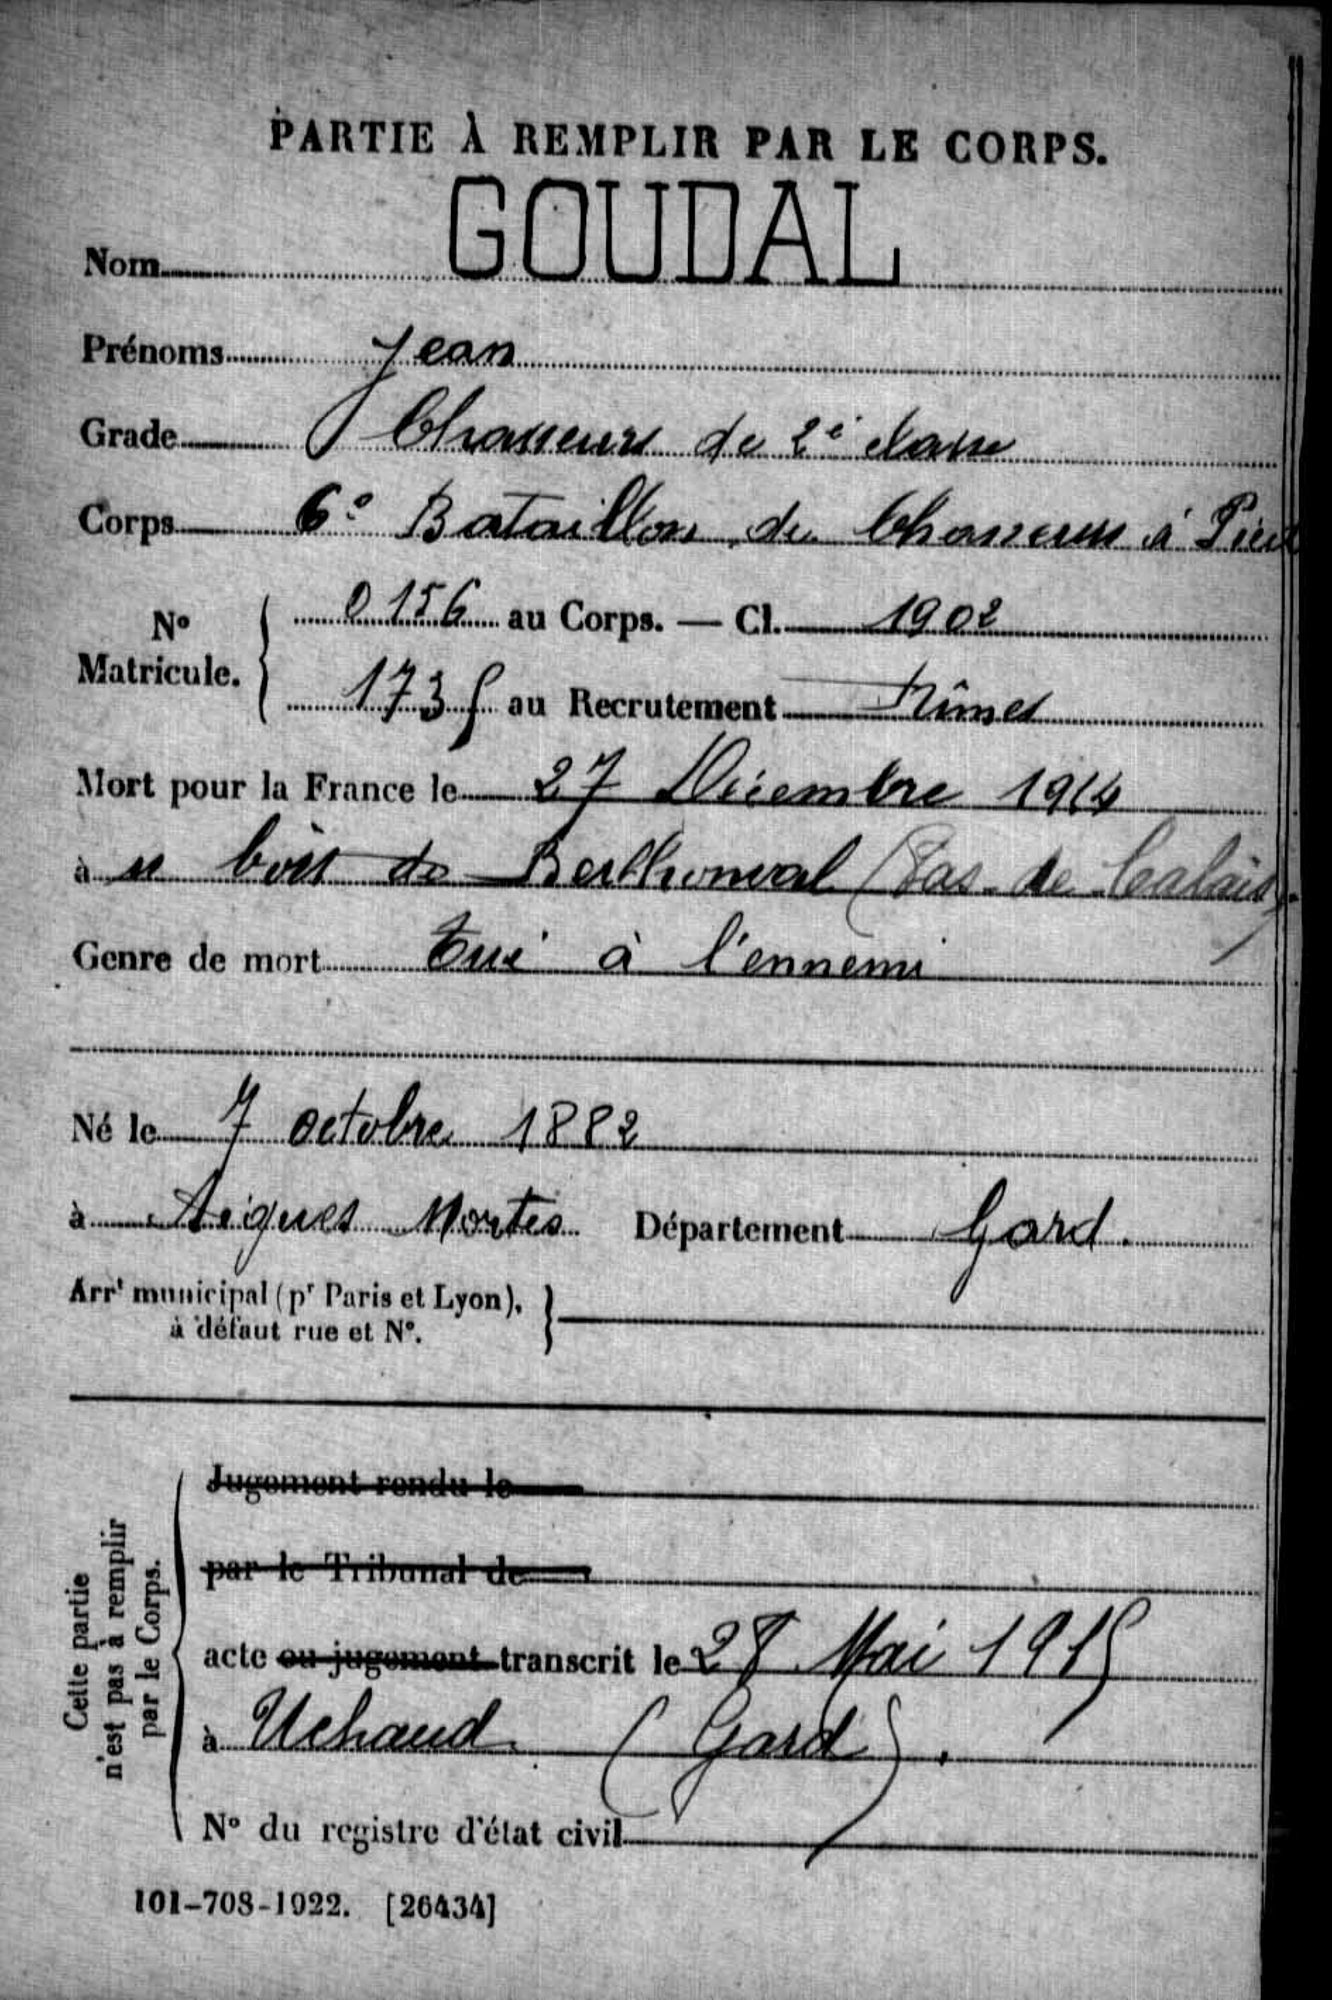 PARTIE À REMPLIR PAR LE CORPS.
Nom GOUDAL
Prénoms Jean
Grade Chasseurs de 2e classe
Corps 6° Bataillon de Chasseurs à Pied
N° Matricule. 0156 au Corps. — Cl. 1902
173 au Recrutement Nîmes
Mort pour la France le 27 Décembre 1914
à bois de Berthonval (Pas-de-Calais)
Genre de mort Tué à l'ennemi
Né le 7 octobre 1882
à Aigues Mortes Département Gard.
Arrt municipal (pr Paris et Lyon),
à défaut rue et N°.
Cette partie
n'est pas à remplir
par le Corps.
Jugement rendu le
par le Tribunal de
acte ou jugement transcrit le 28 Mai 1915
à Uchaud (Gard).
N° du registre d'état civil
101-708-1922. [26434]